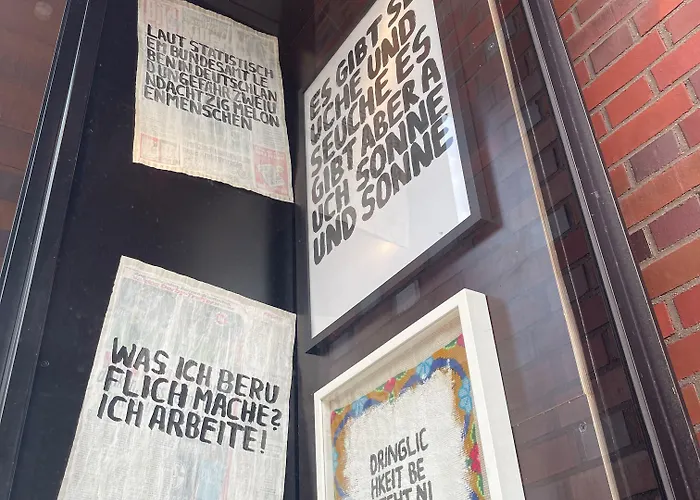 LAUT STATISTISCH
EM BUNDESAMT LE
BEN IN DEUTSCHLAN
D UNGEFÄHR ZWEIU
NDACHTZIG MELON
ENMENSCHEN
ES GIBT SE
UCHE UND
SEUCHE ES
GIBT ABER A
UCH SONNE
UND SONNE
WAS ICH BERU
FLICH MACHE?
ICH ARBEITE!
DRINGLIC
HKEIT BE
STEHT NI